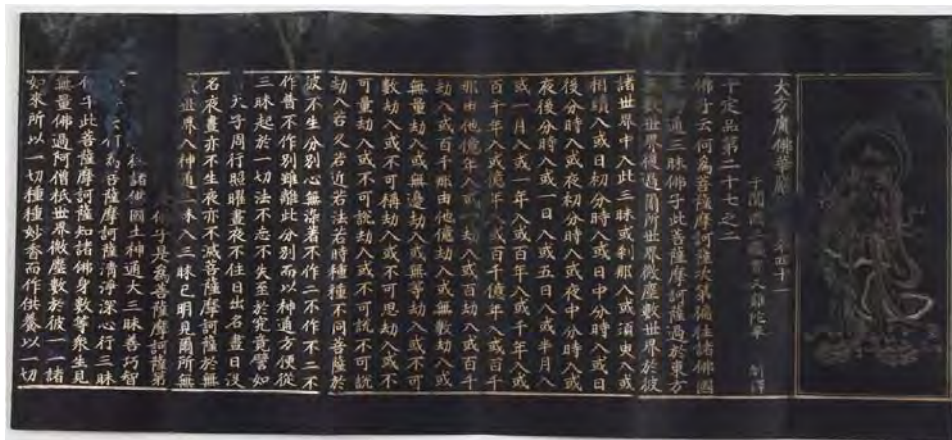 大方廣佛華嚴經卷第四十一
于闐國三藏實叉難陀奉 制譯
十定品第二十七之二
佛子云何為菩薩摩訶薩次第徧往諸佛國
神通三昧佛子此菩薩摩訶薩過於東方
無數世界復過爾所世界微塵數世界於彼
諸世界中入此三昧或刹那入或須臾入或
相續入或日初分時入或日中分時入或日
後分時入或夜初分時入或夜中分時入或
夜後分時入或一日入或五日入或半月入
或一月入或一年入或百年入或千年入或
百千年入或億年入或百千億年入或百千
那由他億年入或一劫入或百劫入或百千
劫入或百千那由他億劫入或無數劫入或
無量劫入或無邊劫入或無等劫入或不可
數劫入或不可稱劫入或不可思劫入或不
可量劫入或不可說劫入或不可說不可說
劫入若久若近若法若時種種不同菩薩於
彼不生分別心無染著不作二不作不二不
作普不作別雖離此分別而以神通方便從
三昧起於一切法不忘不失至於究竟譬如
天子周行照曜晝夜不住日出名晝日沒
名夜晝亦不生夜亦不滅菩薩摩訶薩於無
數世界入神通三昧入三昧已明見爾所無
佛子是為菩薩摩訶薩第
諸佛國土神通大三昧善巧智
云何為菩薩摩訶薩清淨深心行三昧
佛子此菩薩摩訶薩知諸佛身數等衆生見
無量佛過阿僧祇世界微塵數於彼一一諸
如來所以一切種種妙香而作供養以一切